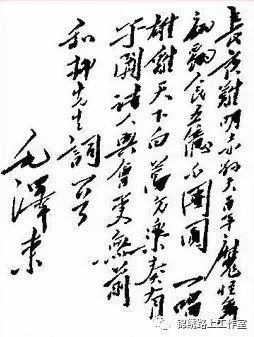 長夜難明赤縣天百年魔怪舞
翩躚人民五億不團圓 一唱
雄雞天下白萬方樂奏有
于闐詩人興會更無前
和柳先生詞一首
毛澤東
锦绣路上工作室